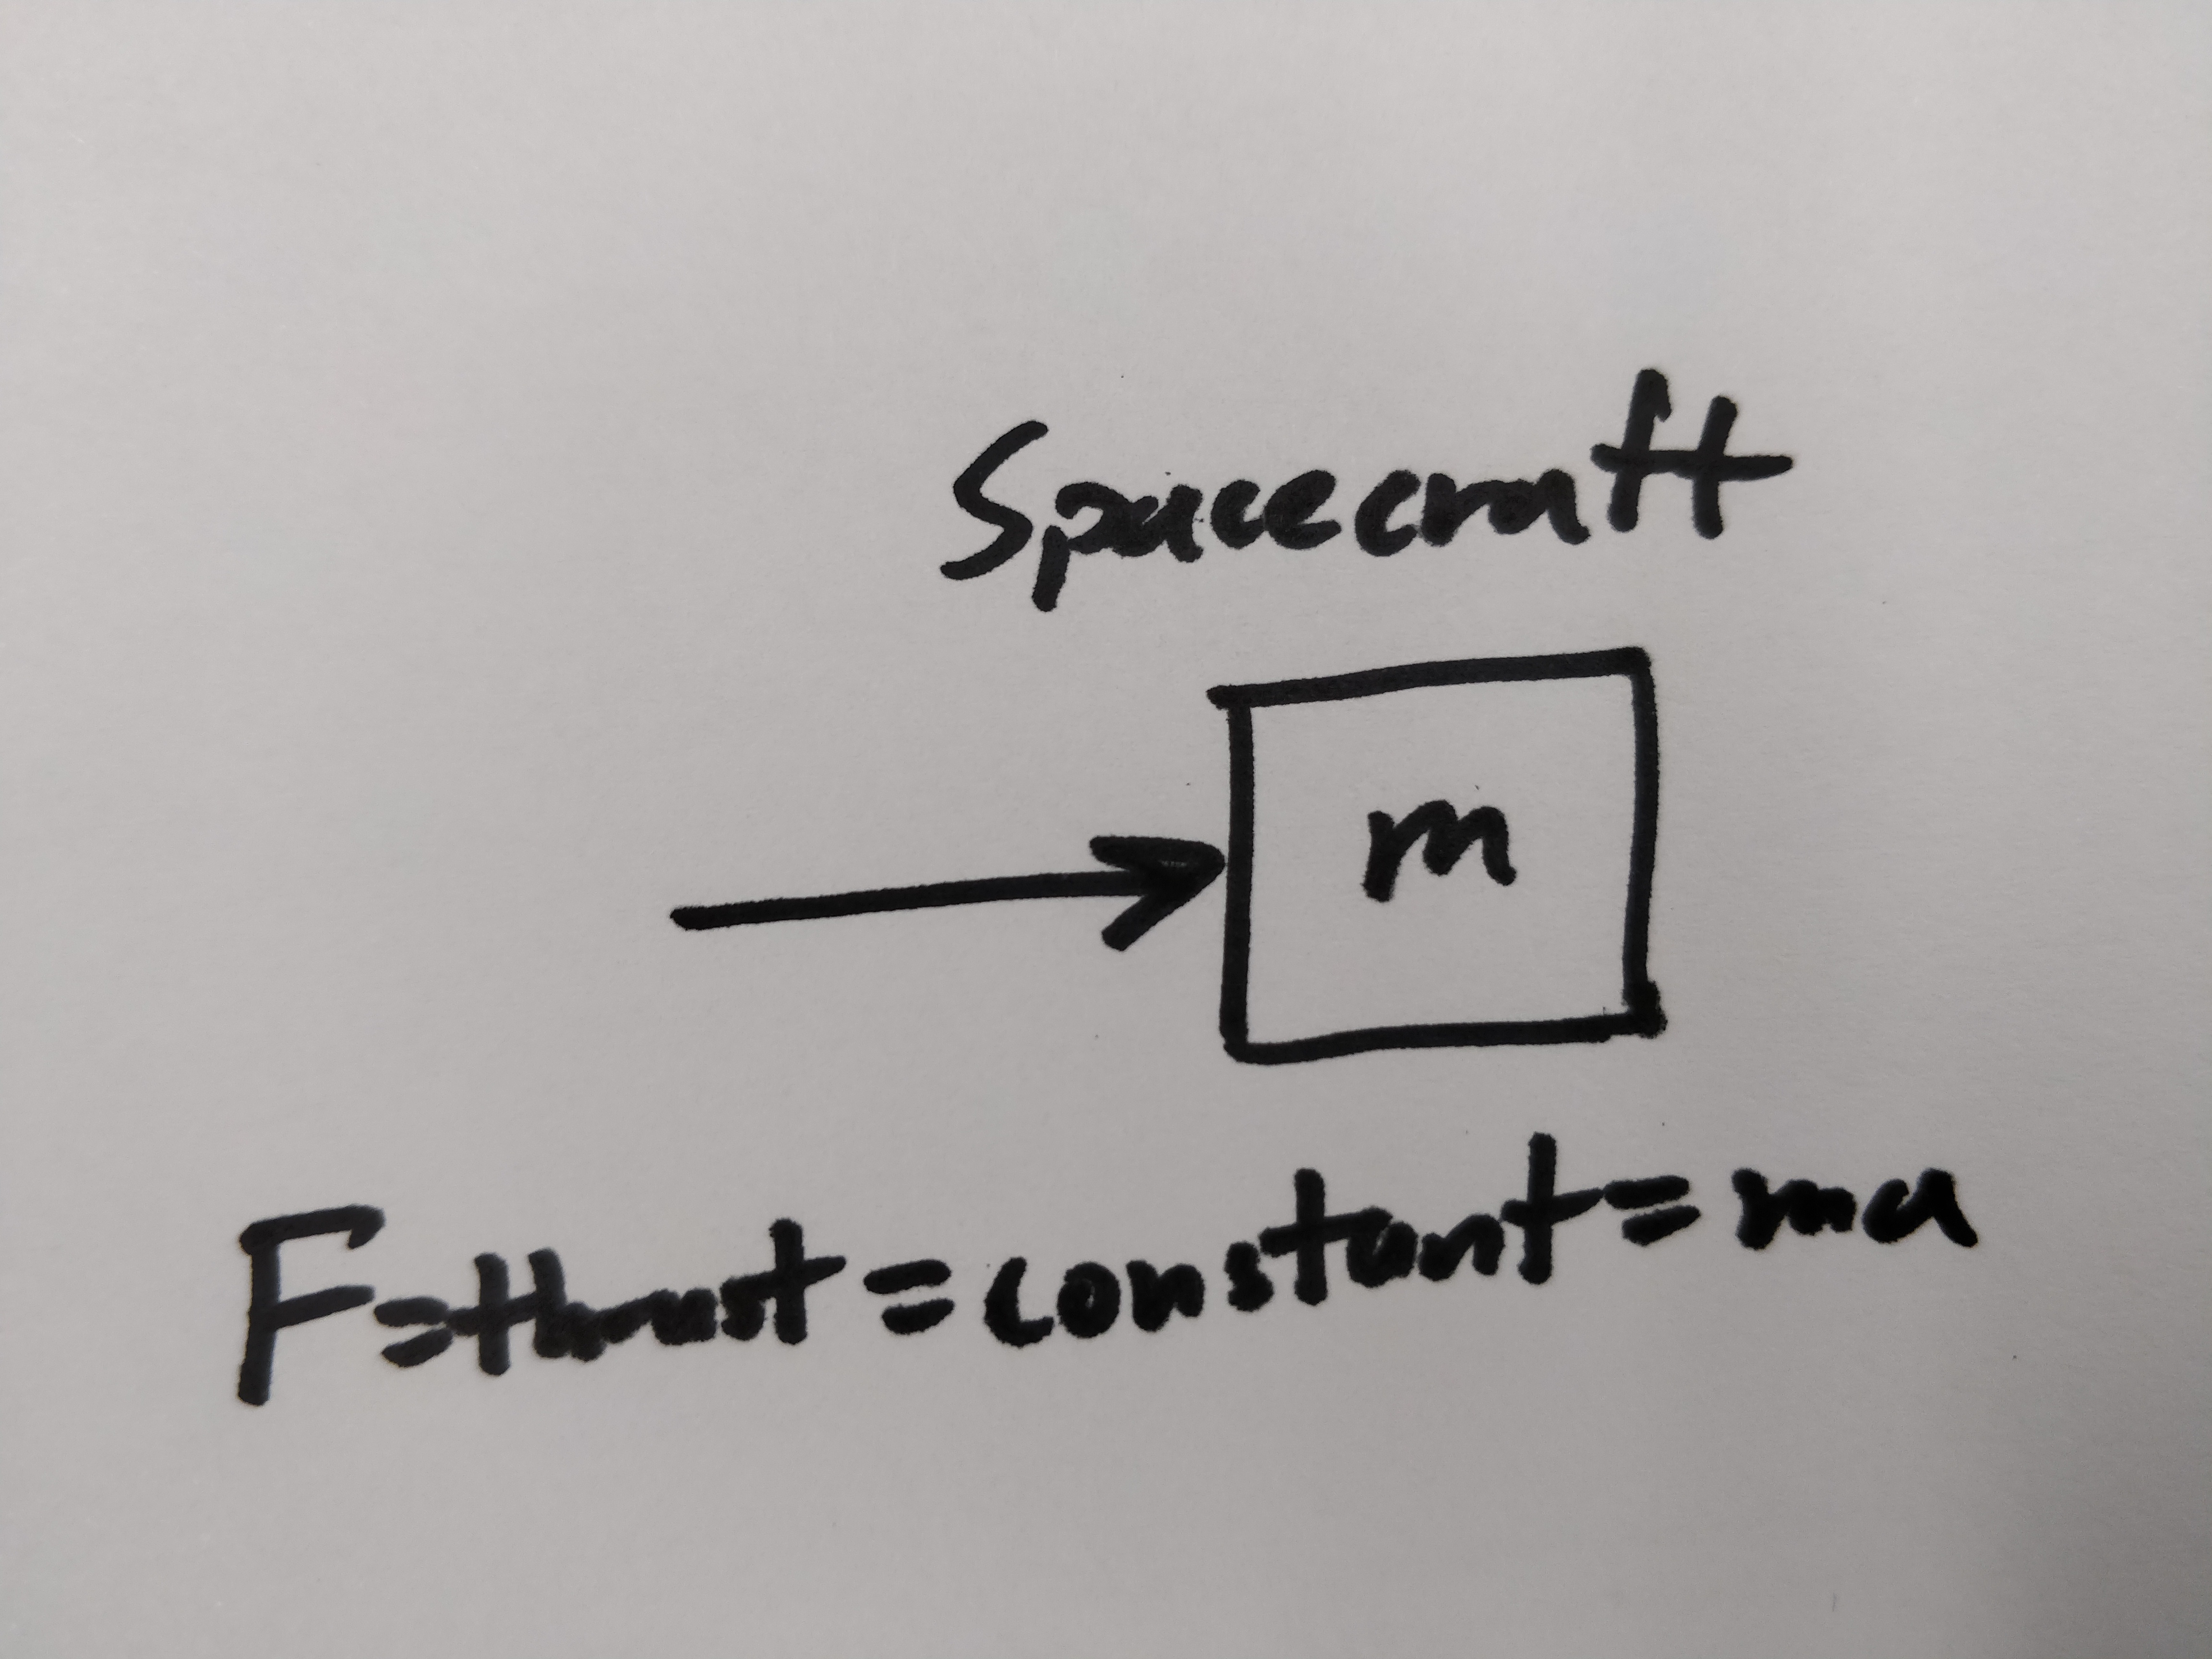 Spacecraft
m
F=thrust=constant=ma